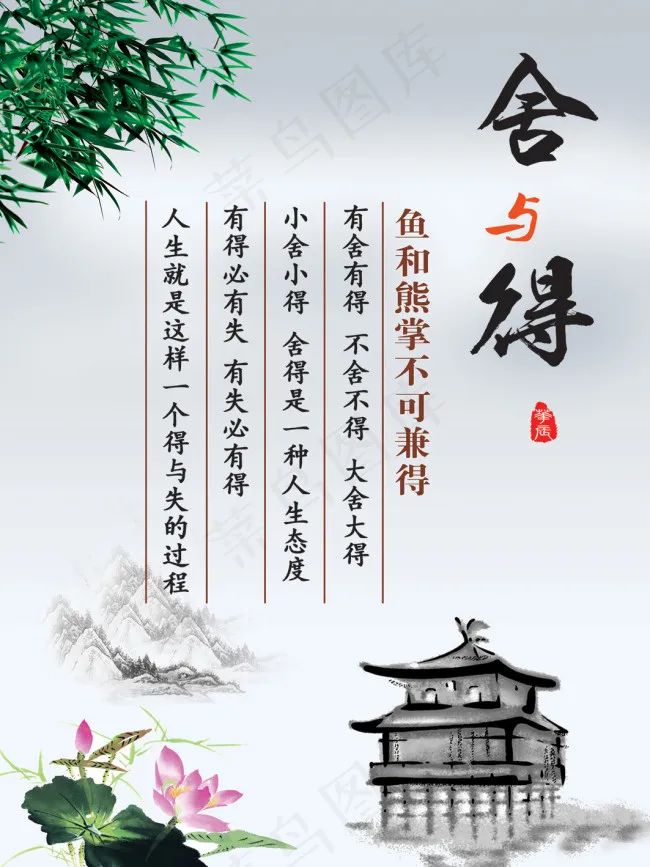 舍与得
鱼和熊掌不可兼得
有舍有得 不舍不得 大舍大得
小舍小得 舍得是一种人生态度
有得必有失 有失必有得
人生就是这样一个得与失的过程
菜鸟图库